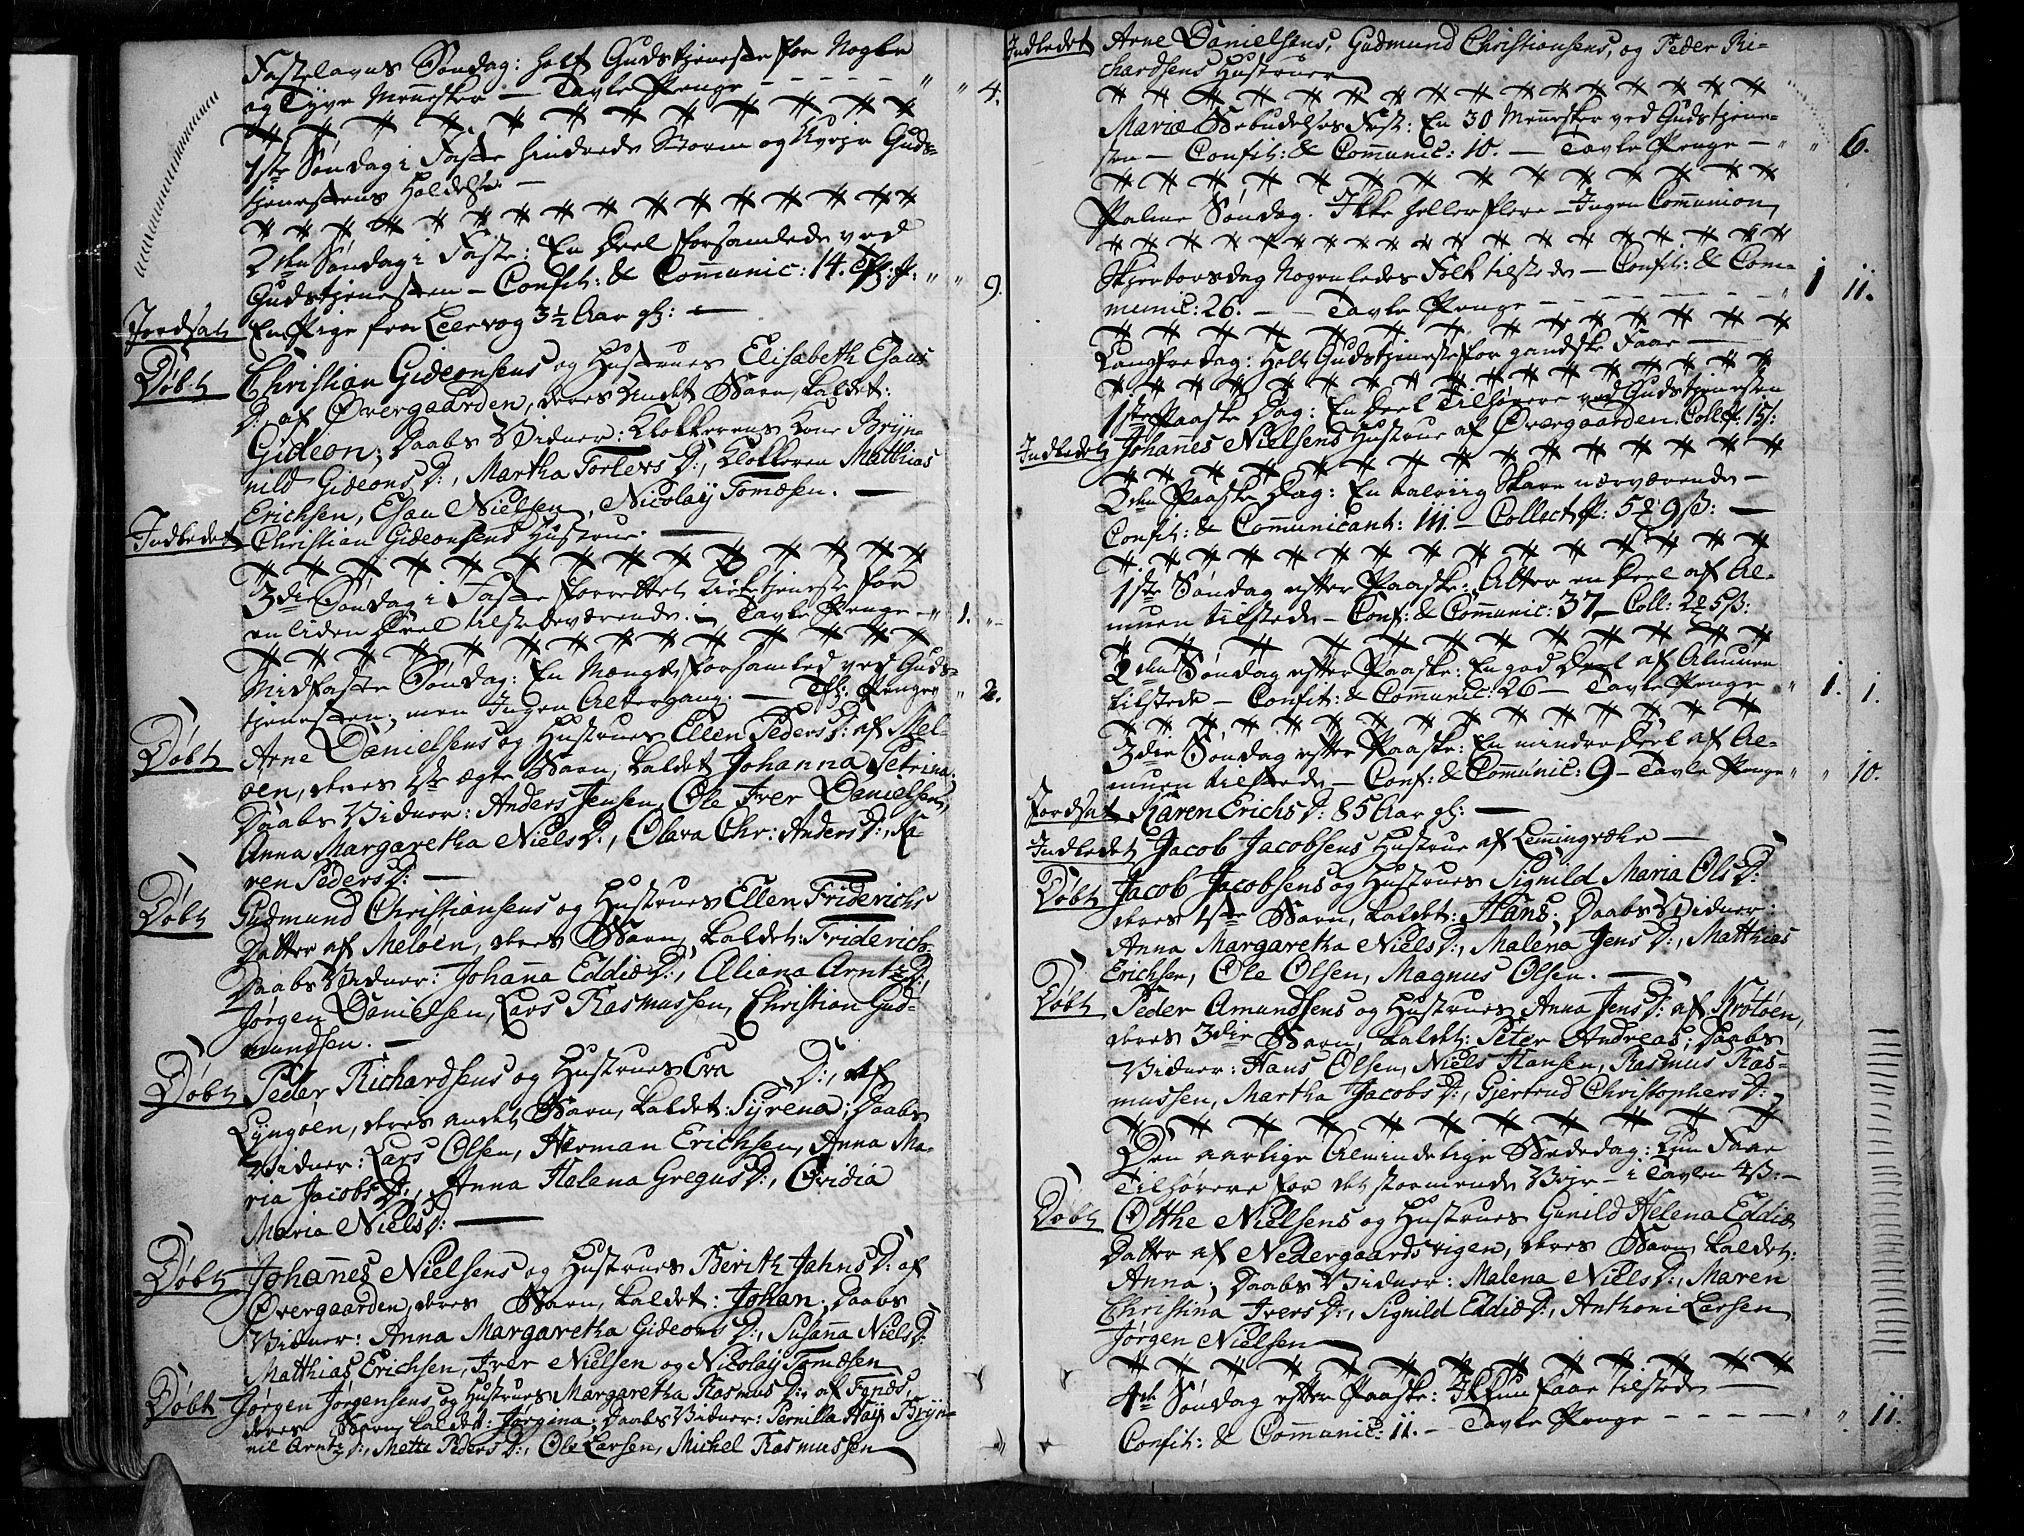 Fastelavns Søndag: holt Gudstjeneste for Nogle
og Tyve Mennesker — Tavle Penge - - - - " " 4.
1ste Søndag i Faste hindrede Storm og Uvejr Guds-
tjenestens Holdelse. —
2den Søndag i Faste: En Deel forsamlede ved
Gudstjenesten — Confit: & Communic: 14. Tfl: P: " " 9.
Jordsat En Pige fra Leervog 3½ Aar gl: —
Døbt Christian Gideonsens og Hustrues Elisabeth Esaus
D: af Overgaarden, deres Andet Barn, kaldet:
Gideon; Daabs Vidner: Klokkerens Kone Bryn-
nild Gideons D:, Martha Torlers D:, Klokkeren Matthias
Erichsen, Esau Nielsen, Nicolaij Tomæsen. —
Indledet Christian Gideonsens Hustrue. —
3die Søndag i Faste forrettet Kirketjeneste for
en liden Deel tilstedeværende. — Tavle Penge — " 1. "
Midfaste Søndag: En Mængde forsamled ved Guds-
tjenesten; men Ingen Altergang. — Tfl: Penger " 2.
Døbt Arne Danielsens og Hustrues Ellen Peders D: af Mel-
øen, deres 1ste ægte Barn, kaldet Johanna Petrina.
Daabs Vidner: Anders Jensen, Ole Iver Danielsen,
Anna Margaretha Niels D:, Olava Chr: Anders D:, Ka-
ren Peders D: —
Døbt Gudmund Christiansens og Hustrues Ellen Friderichs
Datter af Meløen, deres Barn, kaldet: Friderich.
Daabs Vidner: Johanna Eddiæ D:, Aliana Arntz D:,
Jørgen Danielsen, Lars Rasmussen, Christian Gud-
mundsen. —
Døbt Peder Richardsens og Hustrues Eva D:, af
Lyngøen, deres andet Barn, kaldet: Syrena; Daabs
Vidner: Lars Olsen, Herman Erichsen, Anna Ma-
ria Jacobs D:, Anna Halena Gregus D:, Ovidia
Maria Niels D: —
Døbt Johannes Nielsens og Hustrues Berith Jahns D: af
Overgaarden, deres Barn, kaldet: Johan; Daabs
Vidner: Anna Margaretha Gideons D:, Susanna Niels D:
Matthias Erichsen, Iver Nielsen og Nicolaij Tomæsen
Døbt Jørgen Jørgensens og Hustrues Margaretha Rasmus D:, af Fonæs,
deres Barn kaldet: Jørgina: Daabs Vidner: Pernilla Haij Bryn-
nil Arntz D:, Mette Peders D:, Ole Larsen, Michel Rasmussen
Indledet Arne Danielsens, Gudmund Christiansens, og Peder Ri-
chardsens Hustruer
Mariæ Bebudelses Fest: En 30 Mennesker ved Gudstjene-
sten — Confit: & Communic: 10. — Tavle Penge — " " 6.
Palme Søndag. Ikke heller flere — Ingen Communion
Skjertorsdag Nogenledes Folk tilstede — Confit: & Com-
munic: 26. — Tavle Penge - - - - " 1 11.
Langfredag: Holt Gudstjeneste for gandske Faae —
1ste Paaske Dag: En Deel Tilhørere ved Gudstjenesten
Indledet Johannes Nielsens Hustrue af Overgaarden. Collect: 15 ß:
2den Paaske Dag: En talriig Skare nærværende —
Confit: & Communicant: 111. — Collect 5 9 ß: —
1ste Søndag efter Paaske: Atter en Deel af Al-
muen tilstede — Conf: & Communic: 37 — Coll: 2 5 ß:
2den Søndag efter Paaske: En god Deel af Almuen
tilstede — Confit: & Comunic: 26 — Tavle Penge " 1. 1.
3die Søndag efter Paaske: En mindre Deel af Al-
muen tilstede — Conf: & Communic: 9 — Tavle Penge " " 10.
Jordsat Karen Erichs D: 85 Aar gl: —
Indledet Jacob Jacobsens Hustrue af Lemmingvær —
Døbt Jacob Jacobsens og Hustrues Signild Maria Ols D:
deres 1ste Barn, kaldet: Hans; Daabs Vidner:
Anna Margaretha Niels D:, Malena Jens D:, Matthias
Erichsen, Ole Olsen, Magnus Olsen. —
Døbt Peder Amundsens og Hustrues Anna Jens D: af Krotøen,
deres 3die Barn, kaldet: Peter Andreas; Daabs
Vidner: Hans Olsen, Niels Hansen, Rasmus Ras-
mussen, Martha Jacobs D:, Gjertrud Christophers D:
Den aarlige Almindelige Bededag: Kun Faae
Tilhørere for det stormende Vejr — i Tavlen 4 ß: —
Døbt Olthe Nielsens og Hustrues Gunild Helena Eddiæ
Datter af Nedergaards eigen, deres Barn, kaldet:
Anna; Daabs Vidner: Malena Niels D:, Maren
Christina Ivers D:, Signild Eddiæ D:, Anthoni Larsen
Jørgen Nielsen
4de Søndag efter Paaske: Ikkun faae tilstede —
Confit: & Communic: 11. — Tavle Penge - - - - " " 11.